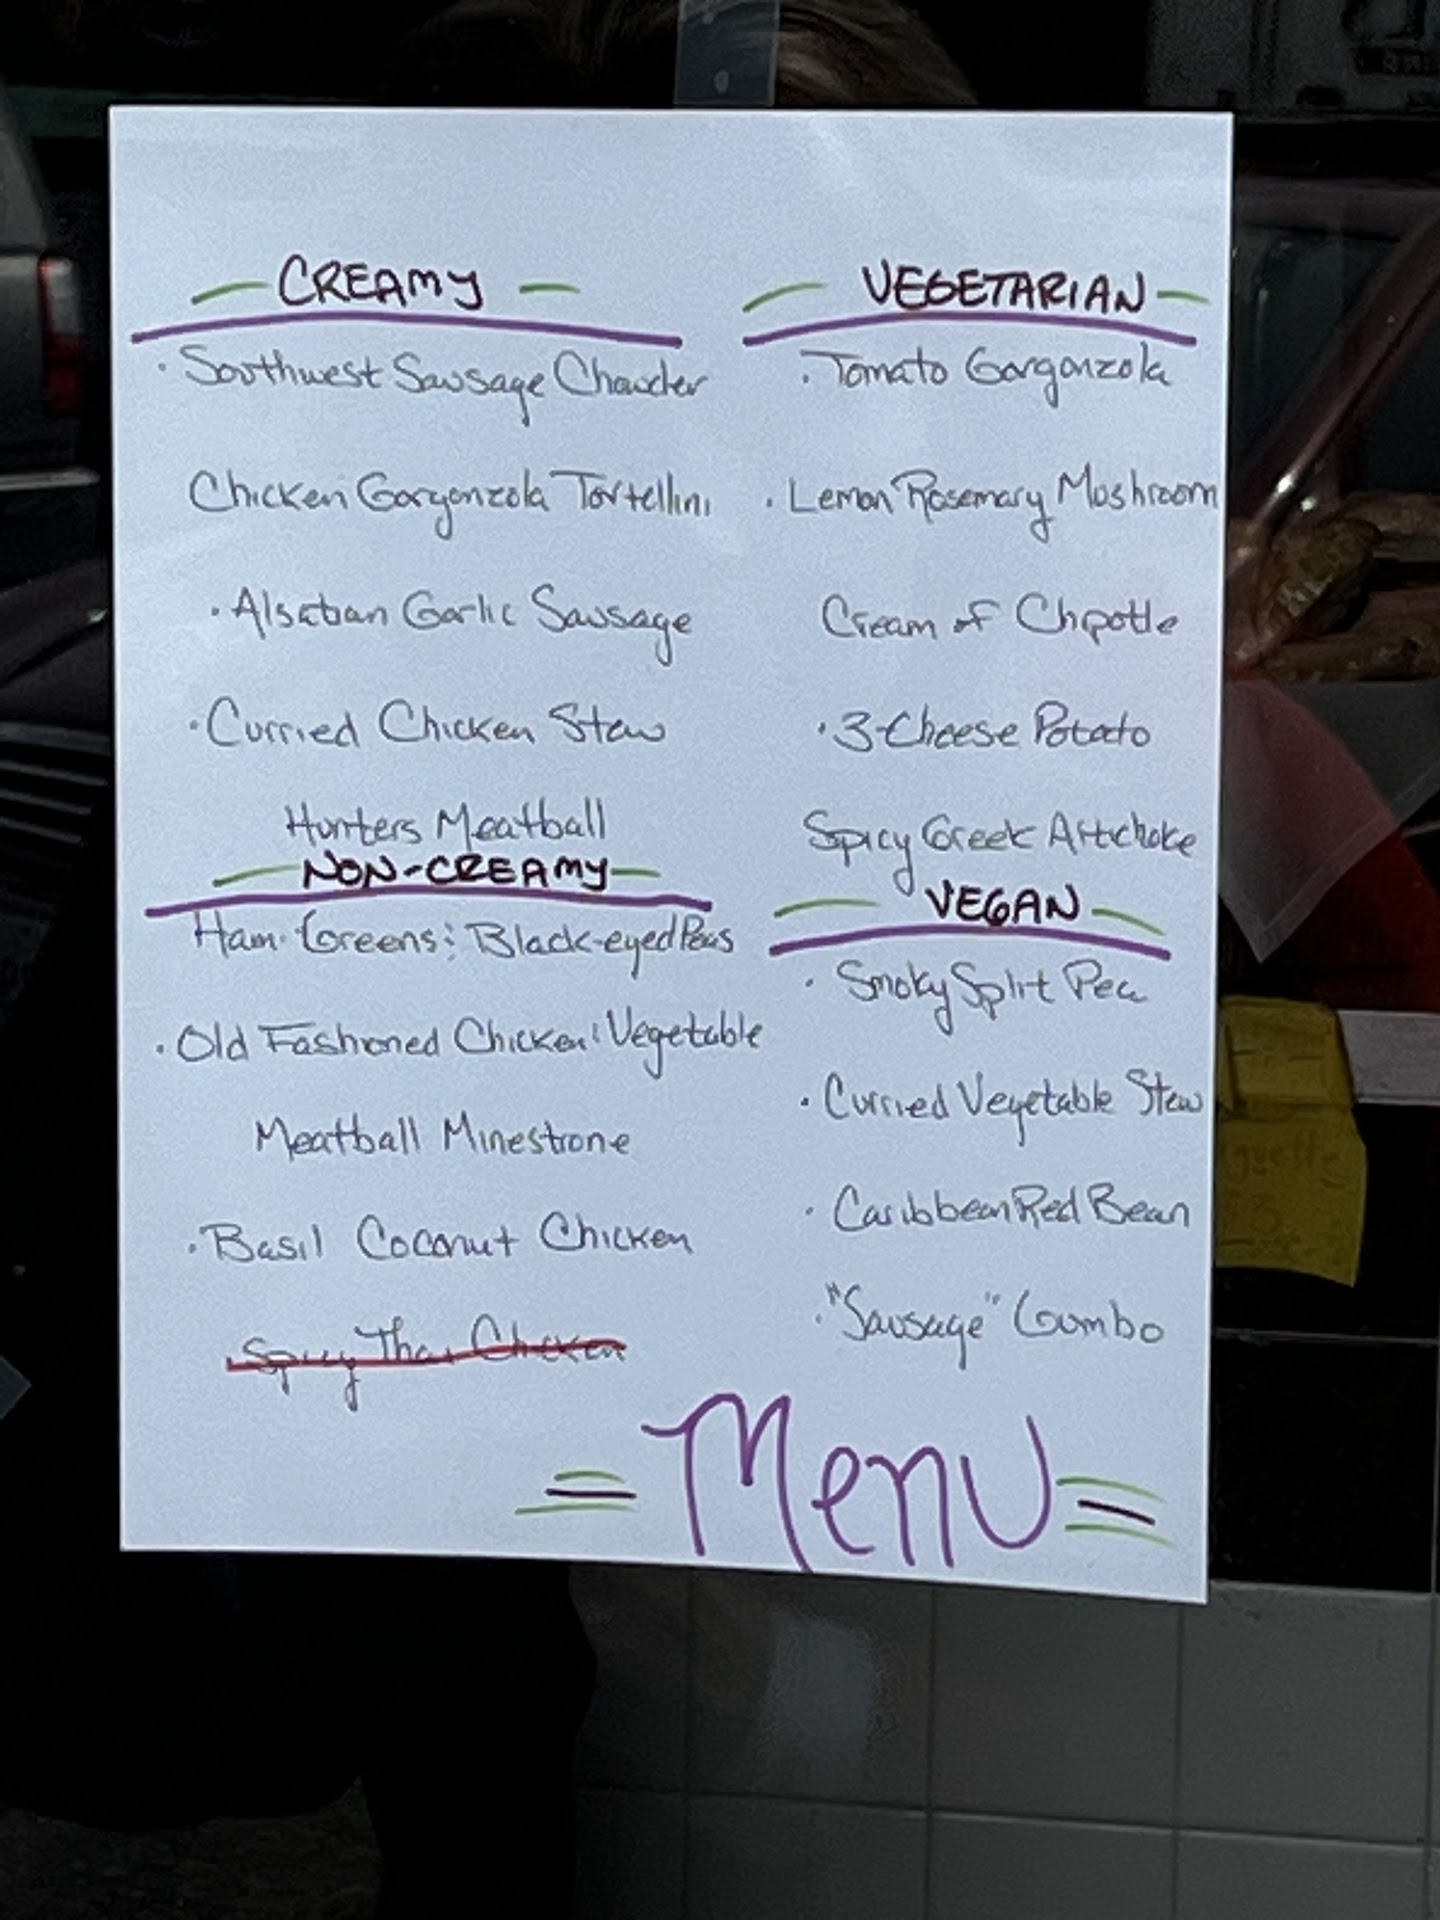 CREAMY
· Southwest Sausage Chowder
Chicken Gorgonzola Tortellini
· Alsatian Garlic Sausage
· Curried Chicken Stew
Hunters Meatball
NON-CREAMY
Ham Greens & Black-eyed Peas
· Old Fashioned Chicken & Vegetable
Meatball Minestrone
· Basil Coconut Chicken
Spicy Thai Chicken
VEGETARIAN
· Tomato Gorgonzola
· Lemon Rosemary Mushroom
Cream of Chipotle
· 3-Cheese Potato
Spicy Greek Artichoke
VEGAN
· Smoky Split Pea
· Curried Vegetable Stew
· Caribbean Red Bean
· "Sausage" Gumbo
= Menu =